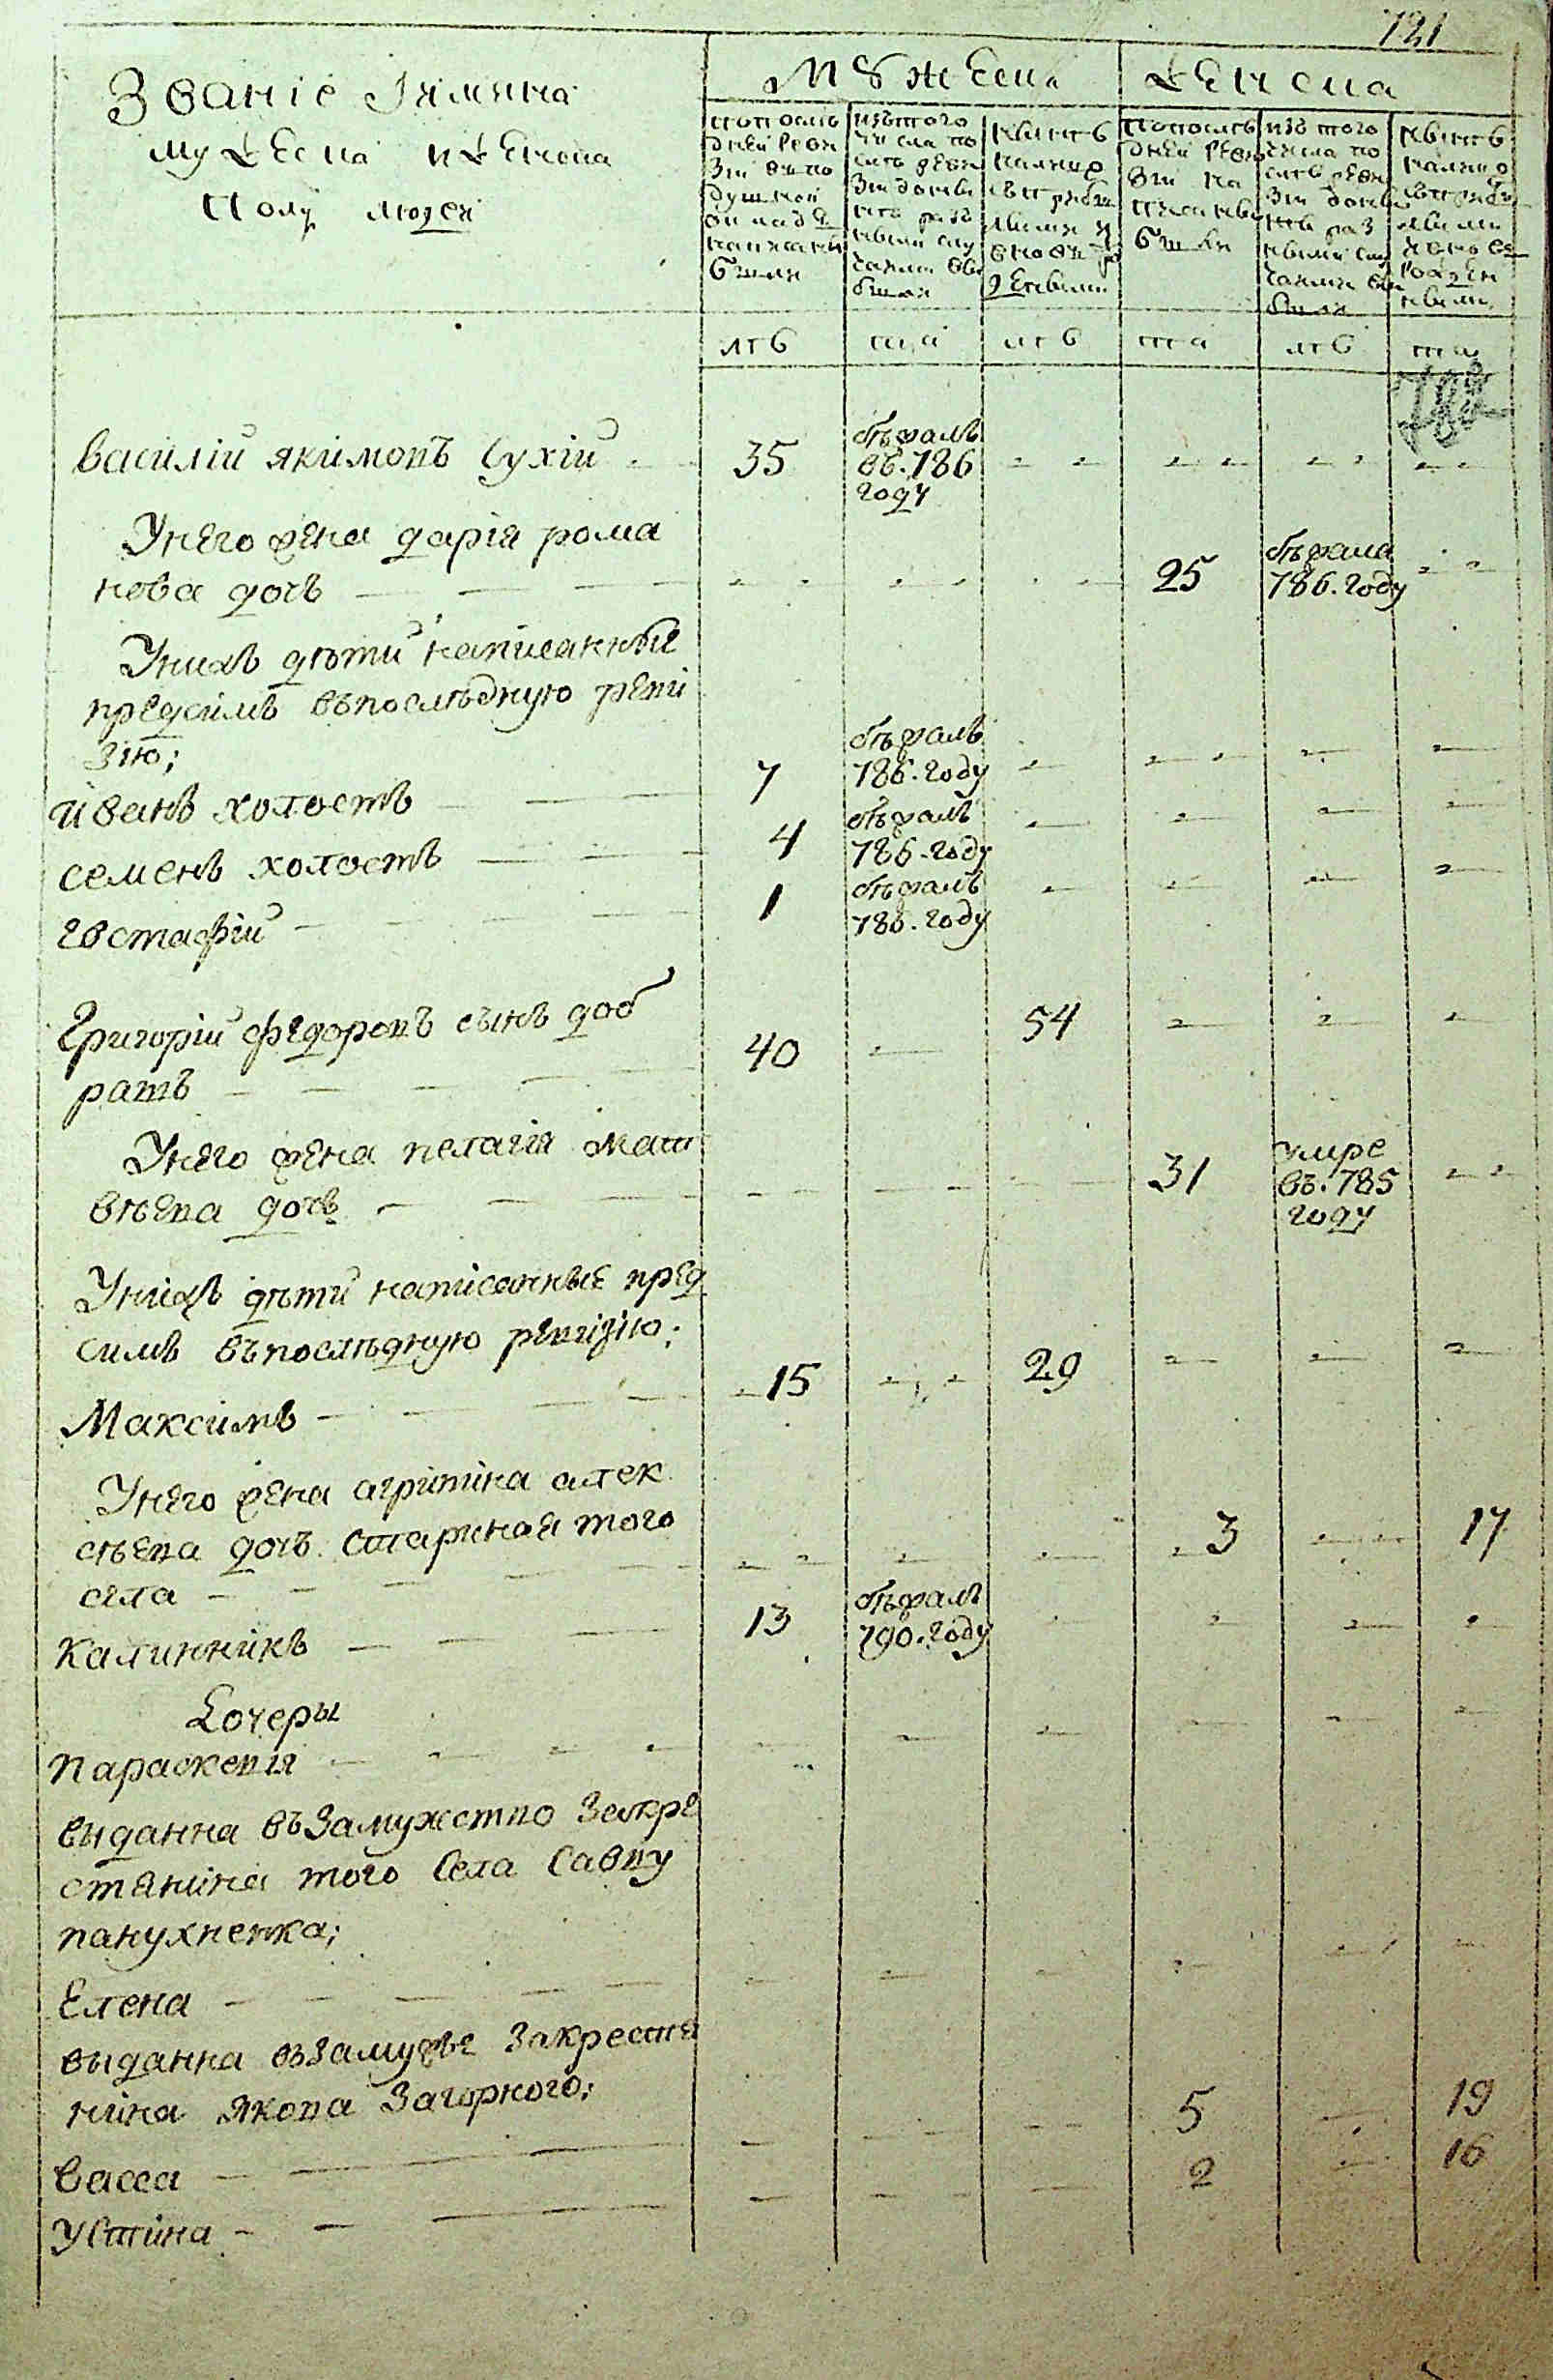 721
Званіе Iимяна
мужеска иженска
полу людей
Мужеска
Женска
попослѣ
дней реви
зіи впо
душной
окладѣ
написанн
бшли
изътого
числа по
слѣ реви
зіи
разъ
ными слу
чаями вы
бшли
ннѣ
налицо
съприбы
лыми и
вновь ро
жденными
попослѣ
дней реви
зіи на
писаны
бшли
изъ того
числа по
слѣ реви
зіи
раз
ными слу
чаями вы
бшли
ннѣ
налицо
съприбы
лыми
и новоро
жден
ными
лѣ та лѣ та лѣ та
василій якимовъ Сухій 35 бѣжалъ въ.786 году
Унего жена дарія рома
нова дочь 25 бѣжала 786.году
Унихъ дѣти написанные
предсимъ въпослѣднюю реви
зію;
иванъ холостъ 7 бѣжалъ 786.году
семенъ холостъ 4 бѣжалъ 786.году
евстафій 1 бѣжалъ 786.году
Григорій федоровъ сынъ доб
рать 40 54
Унего жена пелагія мат
вѣева дочь 31 умре въ.785 году
Унихъ дѣти написанные пред
симъ въпослѣдную ревізію;
Максимъ 15 29
Унего жена агрипіна алек
сѣева дочь старинная того
села 3 17
калинникъ 13 бѣжалъ 790.году
Дочеры
параскевія
выданна въ замужство Закре
стянина того Села Савву
панухненка;
Елена
выданна взамужье Закрестя
нина якова Загорного;
Васса 5 19
Устина 2 16